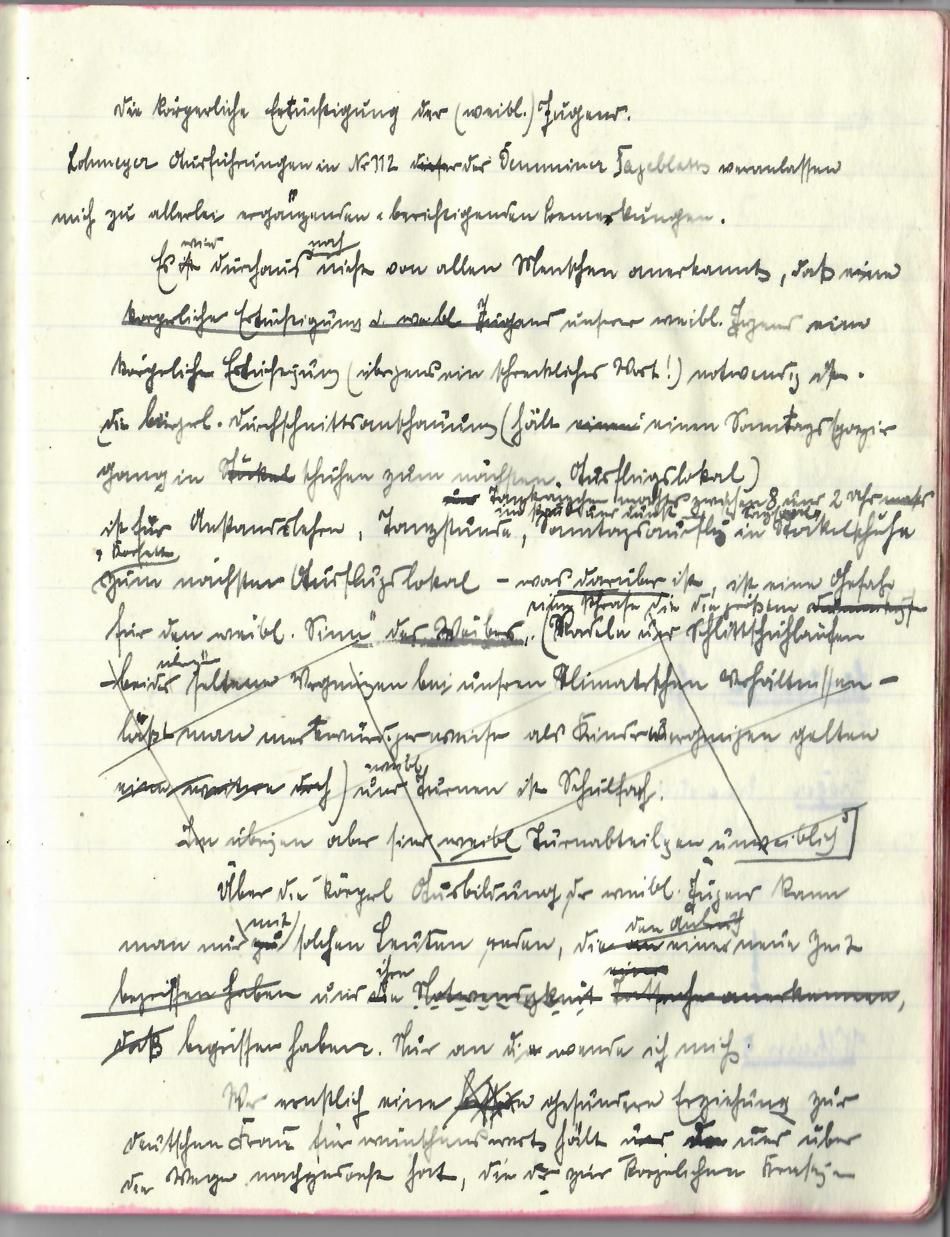 Die körperliche Ertüchtigung der (weibl.) Jugend.
Lohmeyer Ausführungen in Nr 112 dieser des Demminer Tageblatts veranlassen
mich zu allerlei ergänzenden u berichtigenden Bemerkungen.
wird noch
Es ist durchaus nicht von allen Menschen anerkannt, daß eine
körperliche Ertüchtigung d. weibl. Jugend unserer weibl. Jugend eine
körperliche Ertüchtigung (übrigens ein schreckliches Wort!) notwendig ist.
Die bürgerl. Durchschnittsanschauung (hält einen einen Sonntagsspazier
gang in Stöckel schuhen zum nächsten Ausflugslokal)
und zwischen 8 und 2 Uhr
ist für Anstandslehre, Tanzstunde, Sonntagsausflug in Stöckelschuhe
, Korsett
zum nächsten Ausflugslokal – was darüber ist, ist eine Gefahr
eine Phrase die die
für den weibl. Sinn" des Weibes. (Rodeln und Schlittschuhlaufen
übrigens
– beides seltene Vergnügen bei unseren klimatischen Verhältnissen –
läßt man merkwürdigerweise als Kindervergnügen gelten
weibl.
) und Turnen ist Schulfach.
Im übrigen aber sind weibl Turnabteilgen unweiblich"]
Über die körperl Ausbildung der weibl. Jugend kann
mit den Anbruch
man nur zu solchen Leuten reden, die an einer neuen Zeit
ihre einer
begriffen haben und die Notwendigkeit Tatsache anerkennen,
daß begriffen haben. Nur an die wende ich mich.
Wer ernstlich eine gesündere Erziehung zur
deutschen Frau für wünschenswert hält und der und über
die Wege nachgedacht hat, die zur körperlichen